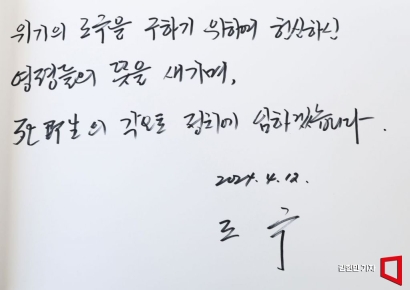 위기의 조국을 구하기 위하여 헌신하신
영령들의 뜻을 새기며,
의 각오로 정치에 임하겠습니다.
2024. 4. 12.
조 국
기자